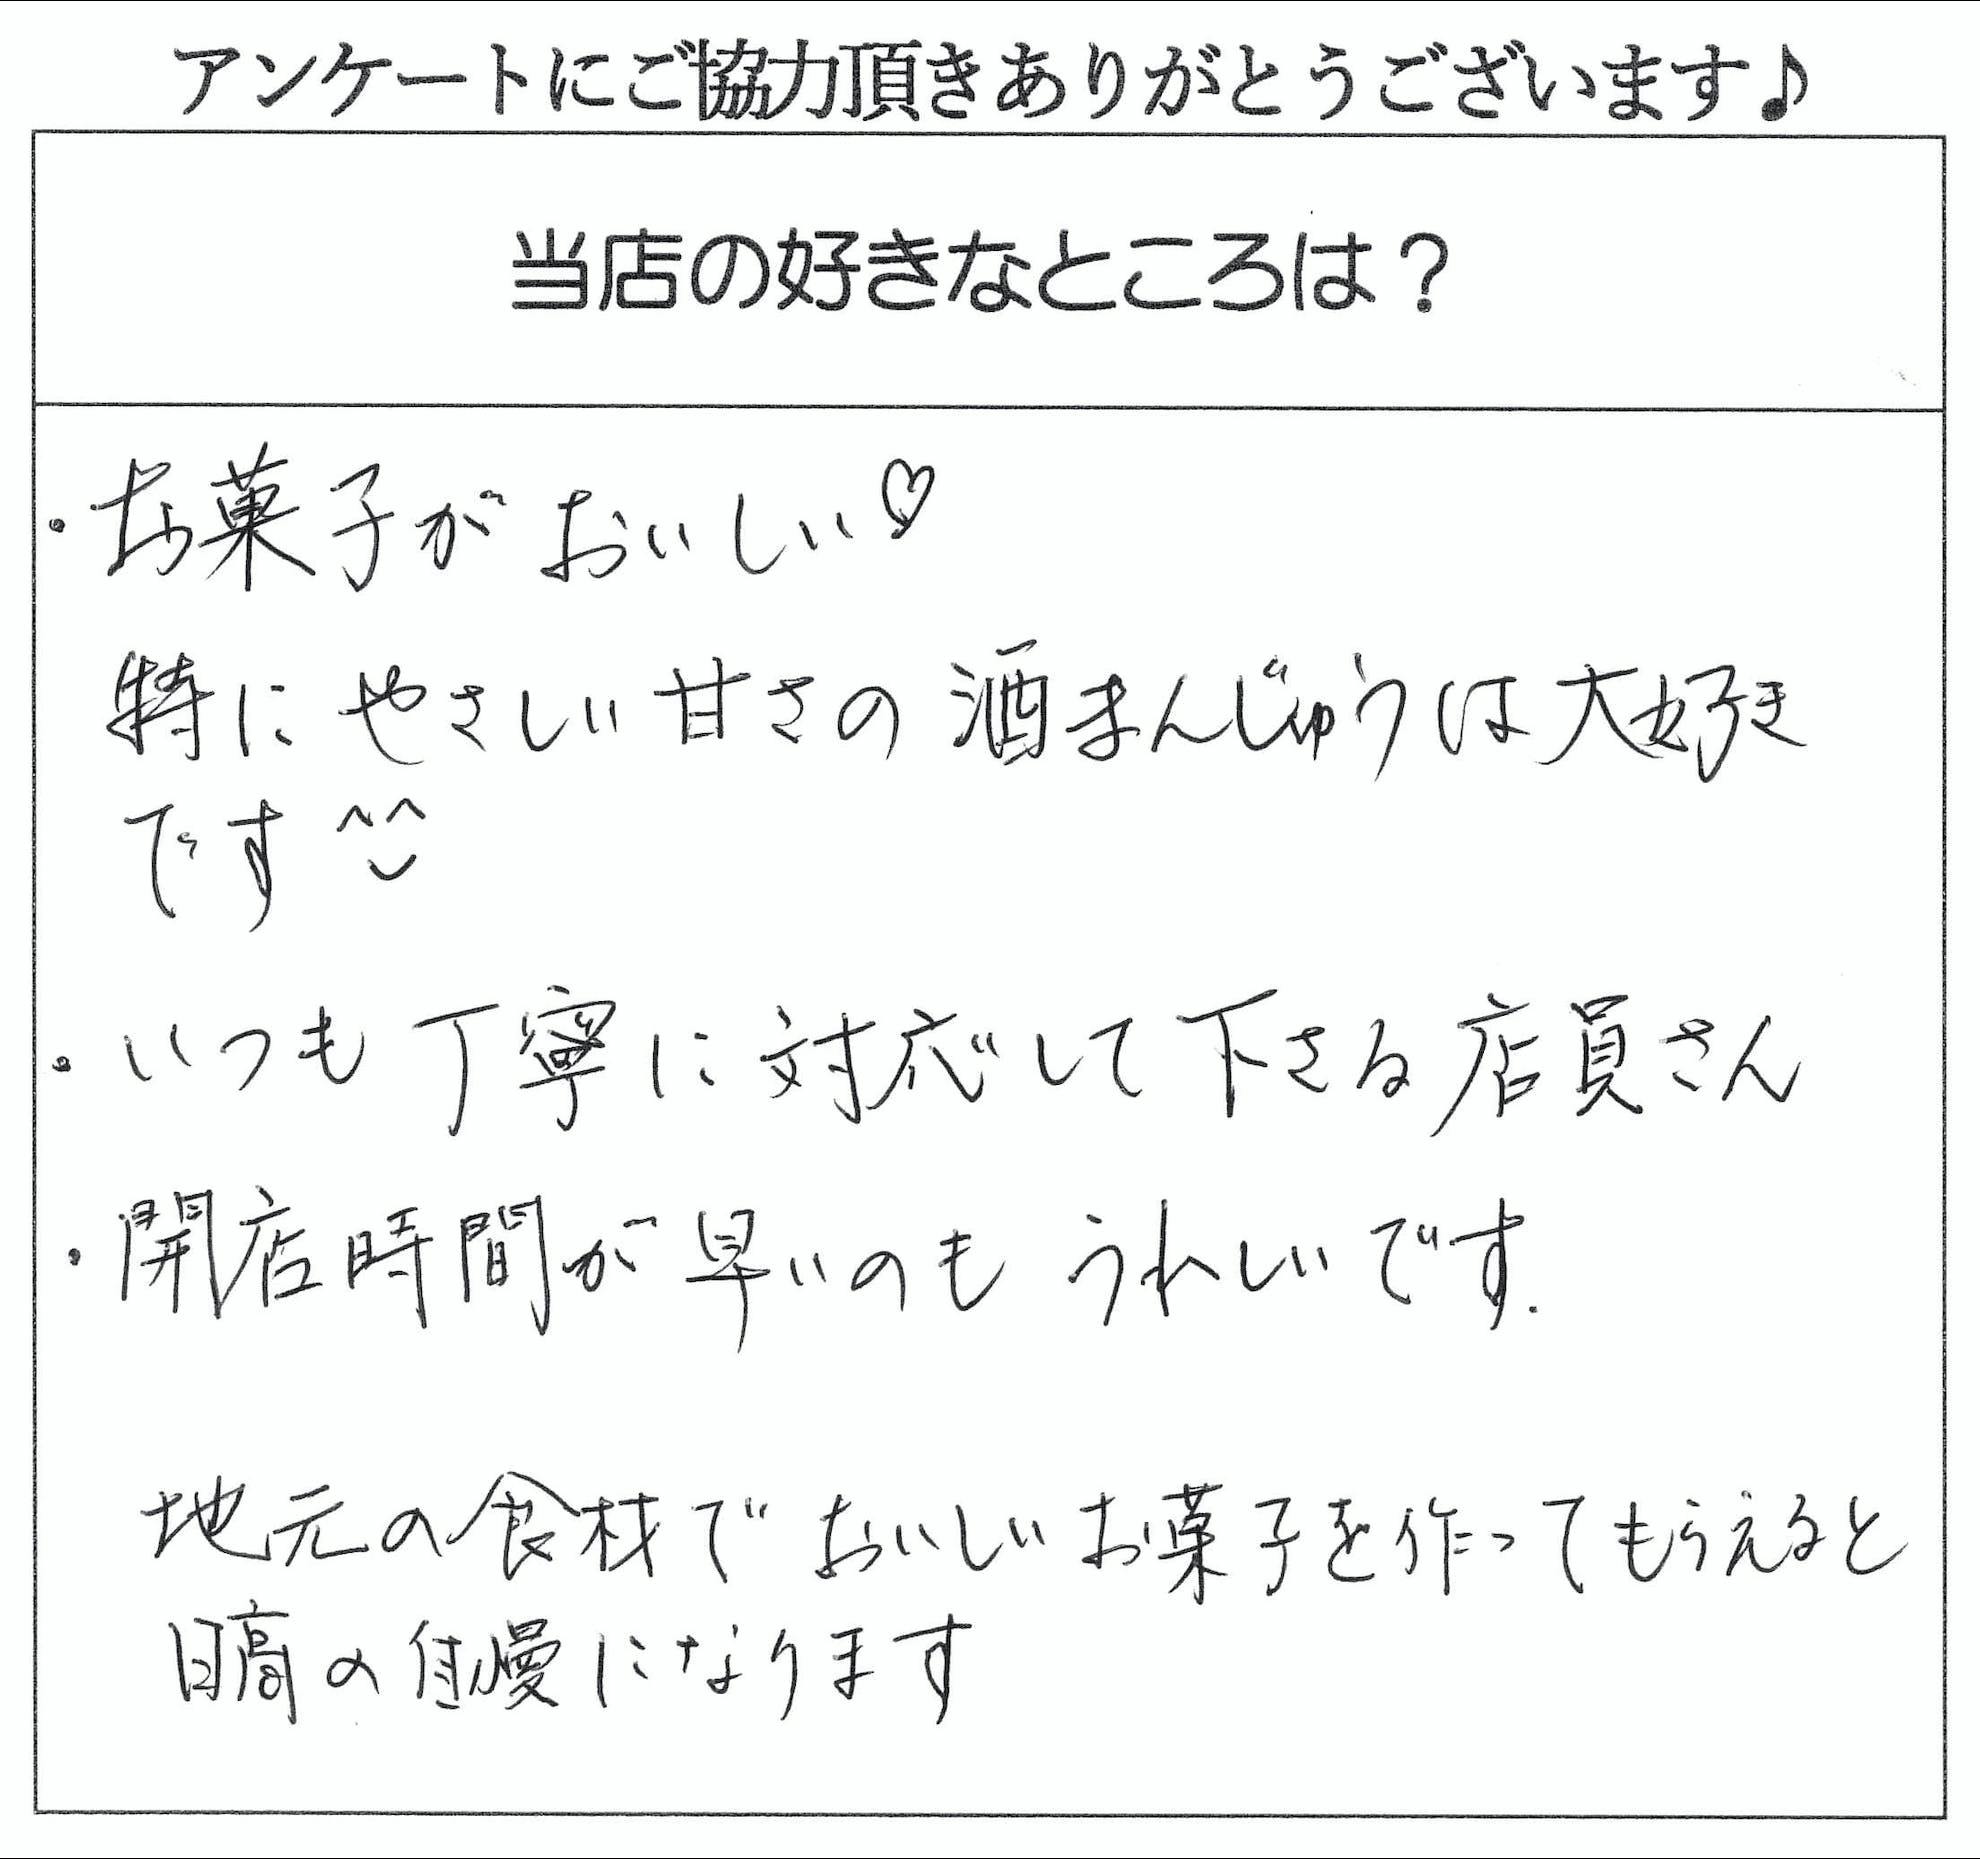 アンケートにご協力頂きありがとうございます♪
当店の好きなところは?
・お菓子がおいしい♡
特にやさしい甘さの酒まんじゅうは大好き
です^^
・いつも丁寧に対応して下さる店員さん
・開店時間が早いのもうれしいです.
地元の食材でおいしいお菓子を作ってもらえると
日高の自慢になります